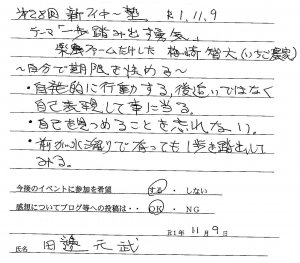 第28回 新フィナ〜塾 R1.11.9
テーマ「一歩踏み出す勇気」
楽農ファームたけした 梅崎智大(いちご農家)
〜自分で期限を決める〜
・自発的に行動する,後追いではなく
自己表現して事に当る。
・自己を見つめることを忘れない。
・前が水溜りで
みる。
今後のイベントに参加を希望 する ・ しない
感想についてブログ等への投稿は・・ OK ・ NG
R1年 11月 9日
氏名 田邉 元武